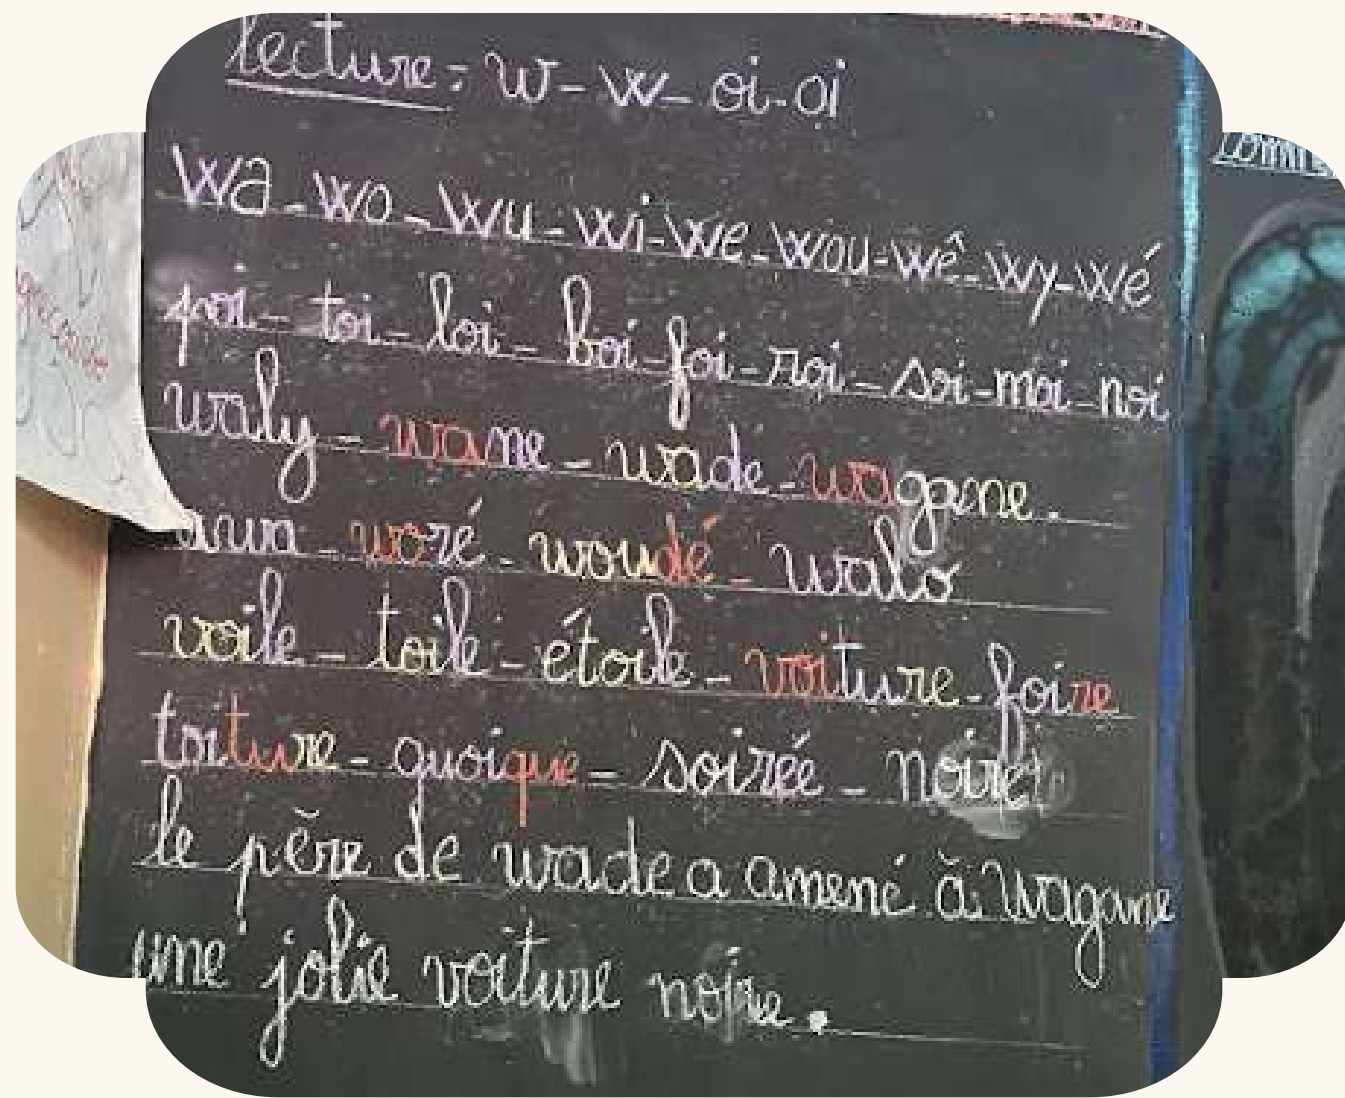 lecture : w - w - oi - oi
wa - wo - wu - wi - we - wou - wê - wy - wé
poi - toi - loi - boi - foi - roi - soi - moi - noi
waly - wane - wade - wagane.
awa - woré - woudé - walo
voile - toile - étoile - voiture - foire
toiture - quoique - soirée - noire
le père de wade a amené à Wagane
une jolie voiture noire.